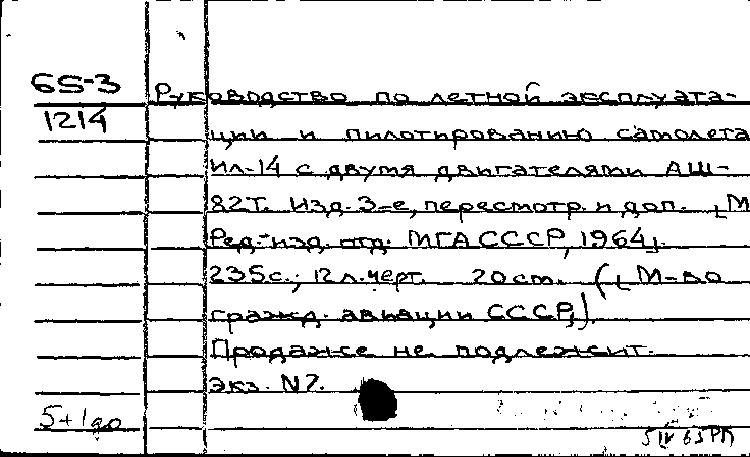 65-3
1214
Руководство по летной эксплуата-
ции и пилотированию самолета
Ил-14 с двумя двигателями АШ-
82Т. Изд. 3-е, пересмотр. и доп. [М
Ред.-изд. отд. МГА СССР, 1964].
235с.; 12 л.черт. 20см. ([М-во
гражд. авиации СССР]).
Продаже не подлежит.
Экз. N7.
5+1
5 IV 65